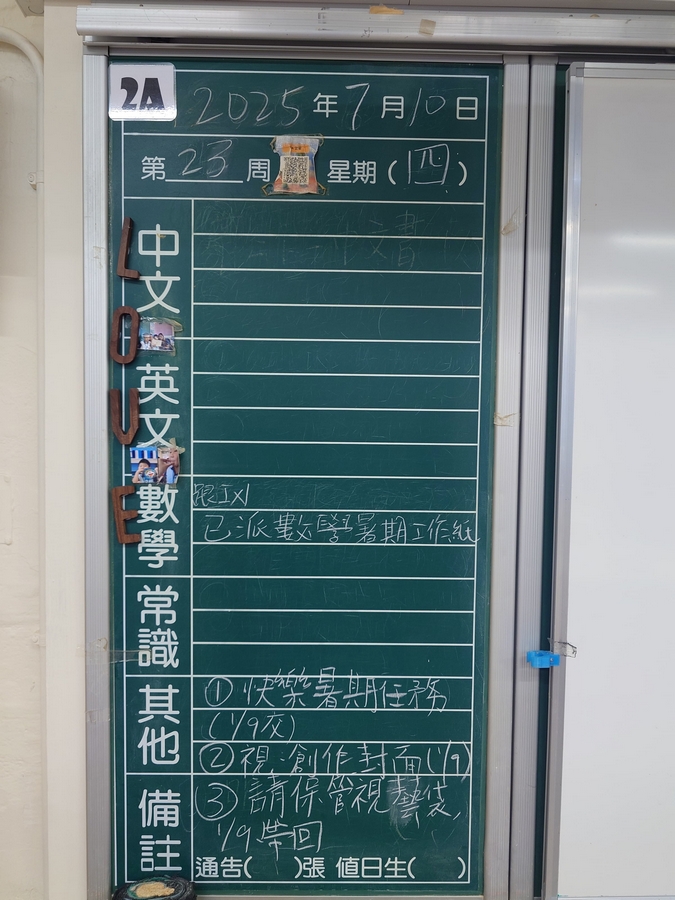 2A
2025年7月10日
第23周 星期(四)
LOVE
中文
英文
數學
跟工x1
已派數學暑期工作紙
常識
其他
①快樂暑期任務
(1/9交)
②視:創作封面(1/9)
備註
③請保管視藝袋,
1/9帶回
通告( )張 值日生( )